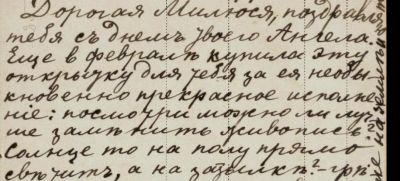 Дорогая Милюся, поздравляю
тебя съ днемъ твоего Ангела.
Еще в февралѣ купила эту
открытку для тебя за ея необы-
кновенно прекрасное исполне-
ніе: посмотри можно ли луч-
ше замѣнить живопись
солнце то на полу прямо
свѣтитъ, а на затылкѣ - грѣ-